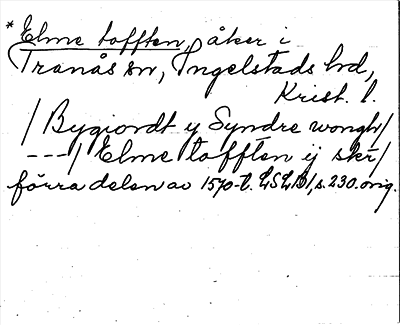 * Elme tofften, åker i
Tranås sn, Ingelstads hd,
Krist. l.
/Bygiordt y Syndre wongh/
---/Elme tofften ij skr/
förra delen av 1570-t. LSLB1, s. 230. orig.